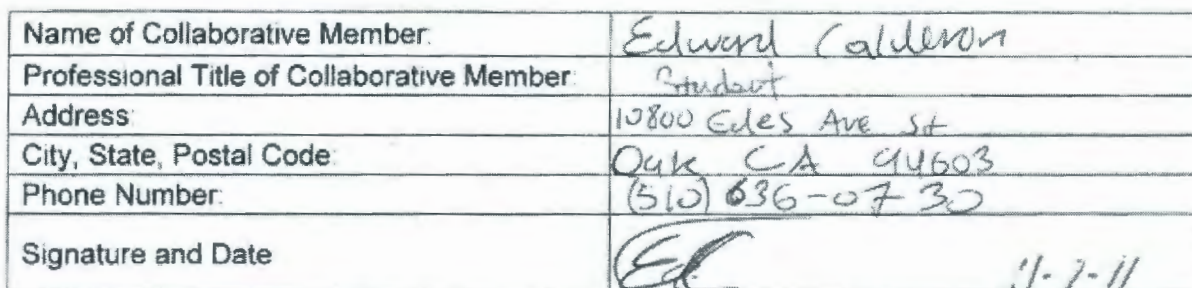 Name of Collaborative Member: Edward Calderon
Professional Title of Collaborative Member: Student
Address: 10800 Edes Ave St
City, State, Postal Code: Oak CA 94603
Phone Number: (510) 636-0730
Signature and Date Ed.